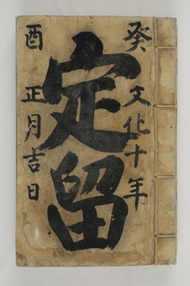 癸文化十年
定留
酉正月吉日